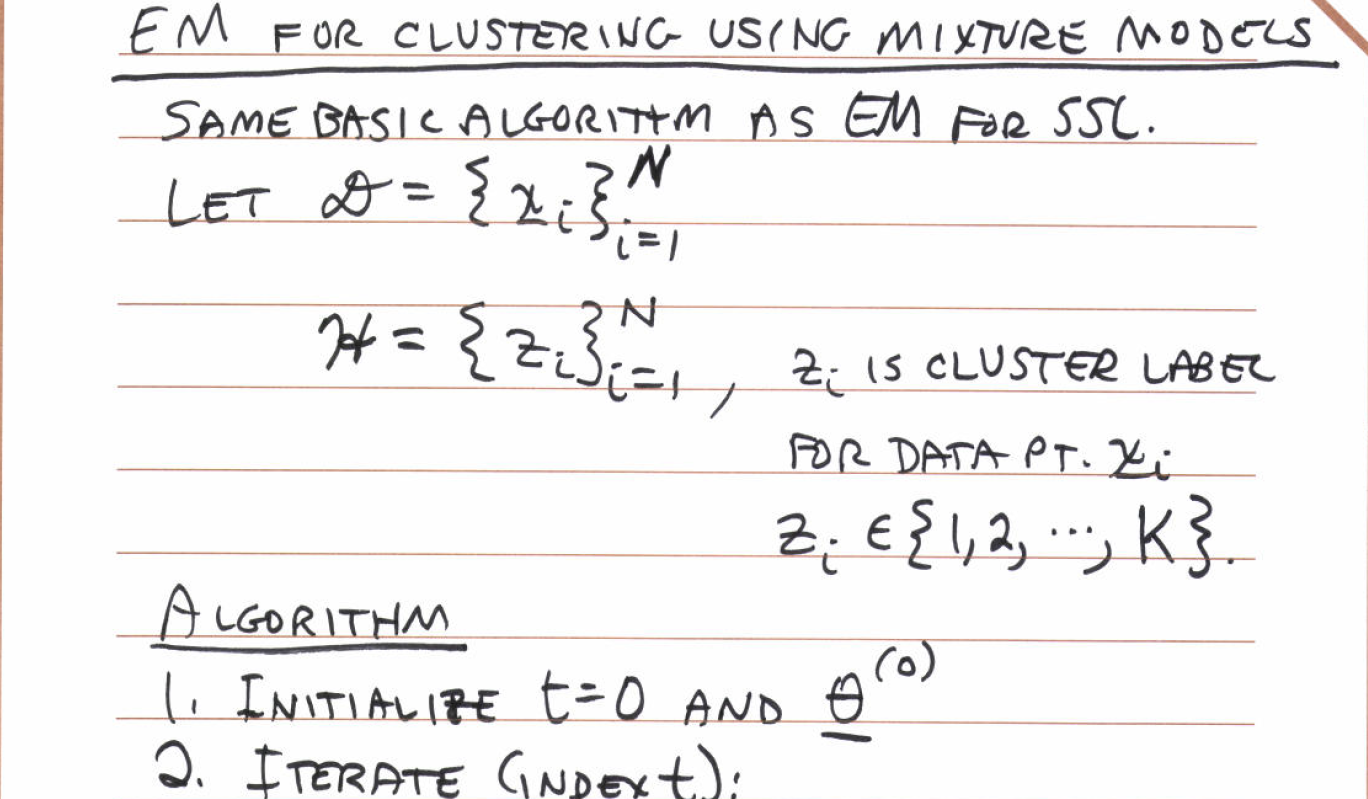 EM FOR CLUSTERING USING MIXTURE MODELS
SAME BASIC ALGORITHM AS EM FOR SSL.
LET 𝒟 = {x̲ᵢ}ᵢ₌₁ᴺ
ℋ = {zᵢ}ᵢ₌₁ᴺ, zᵢ IS CLUSTER LABEL
FOR DATA PT. x̲ᵢ
zᵢ ∈ {1, 2, ⋯, K}.
ALGORITHM
1. INITIALIZE t=0 AND θ̲⁽⁰⁾
2. ITERATE (INDEX t):